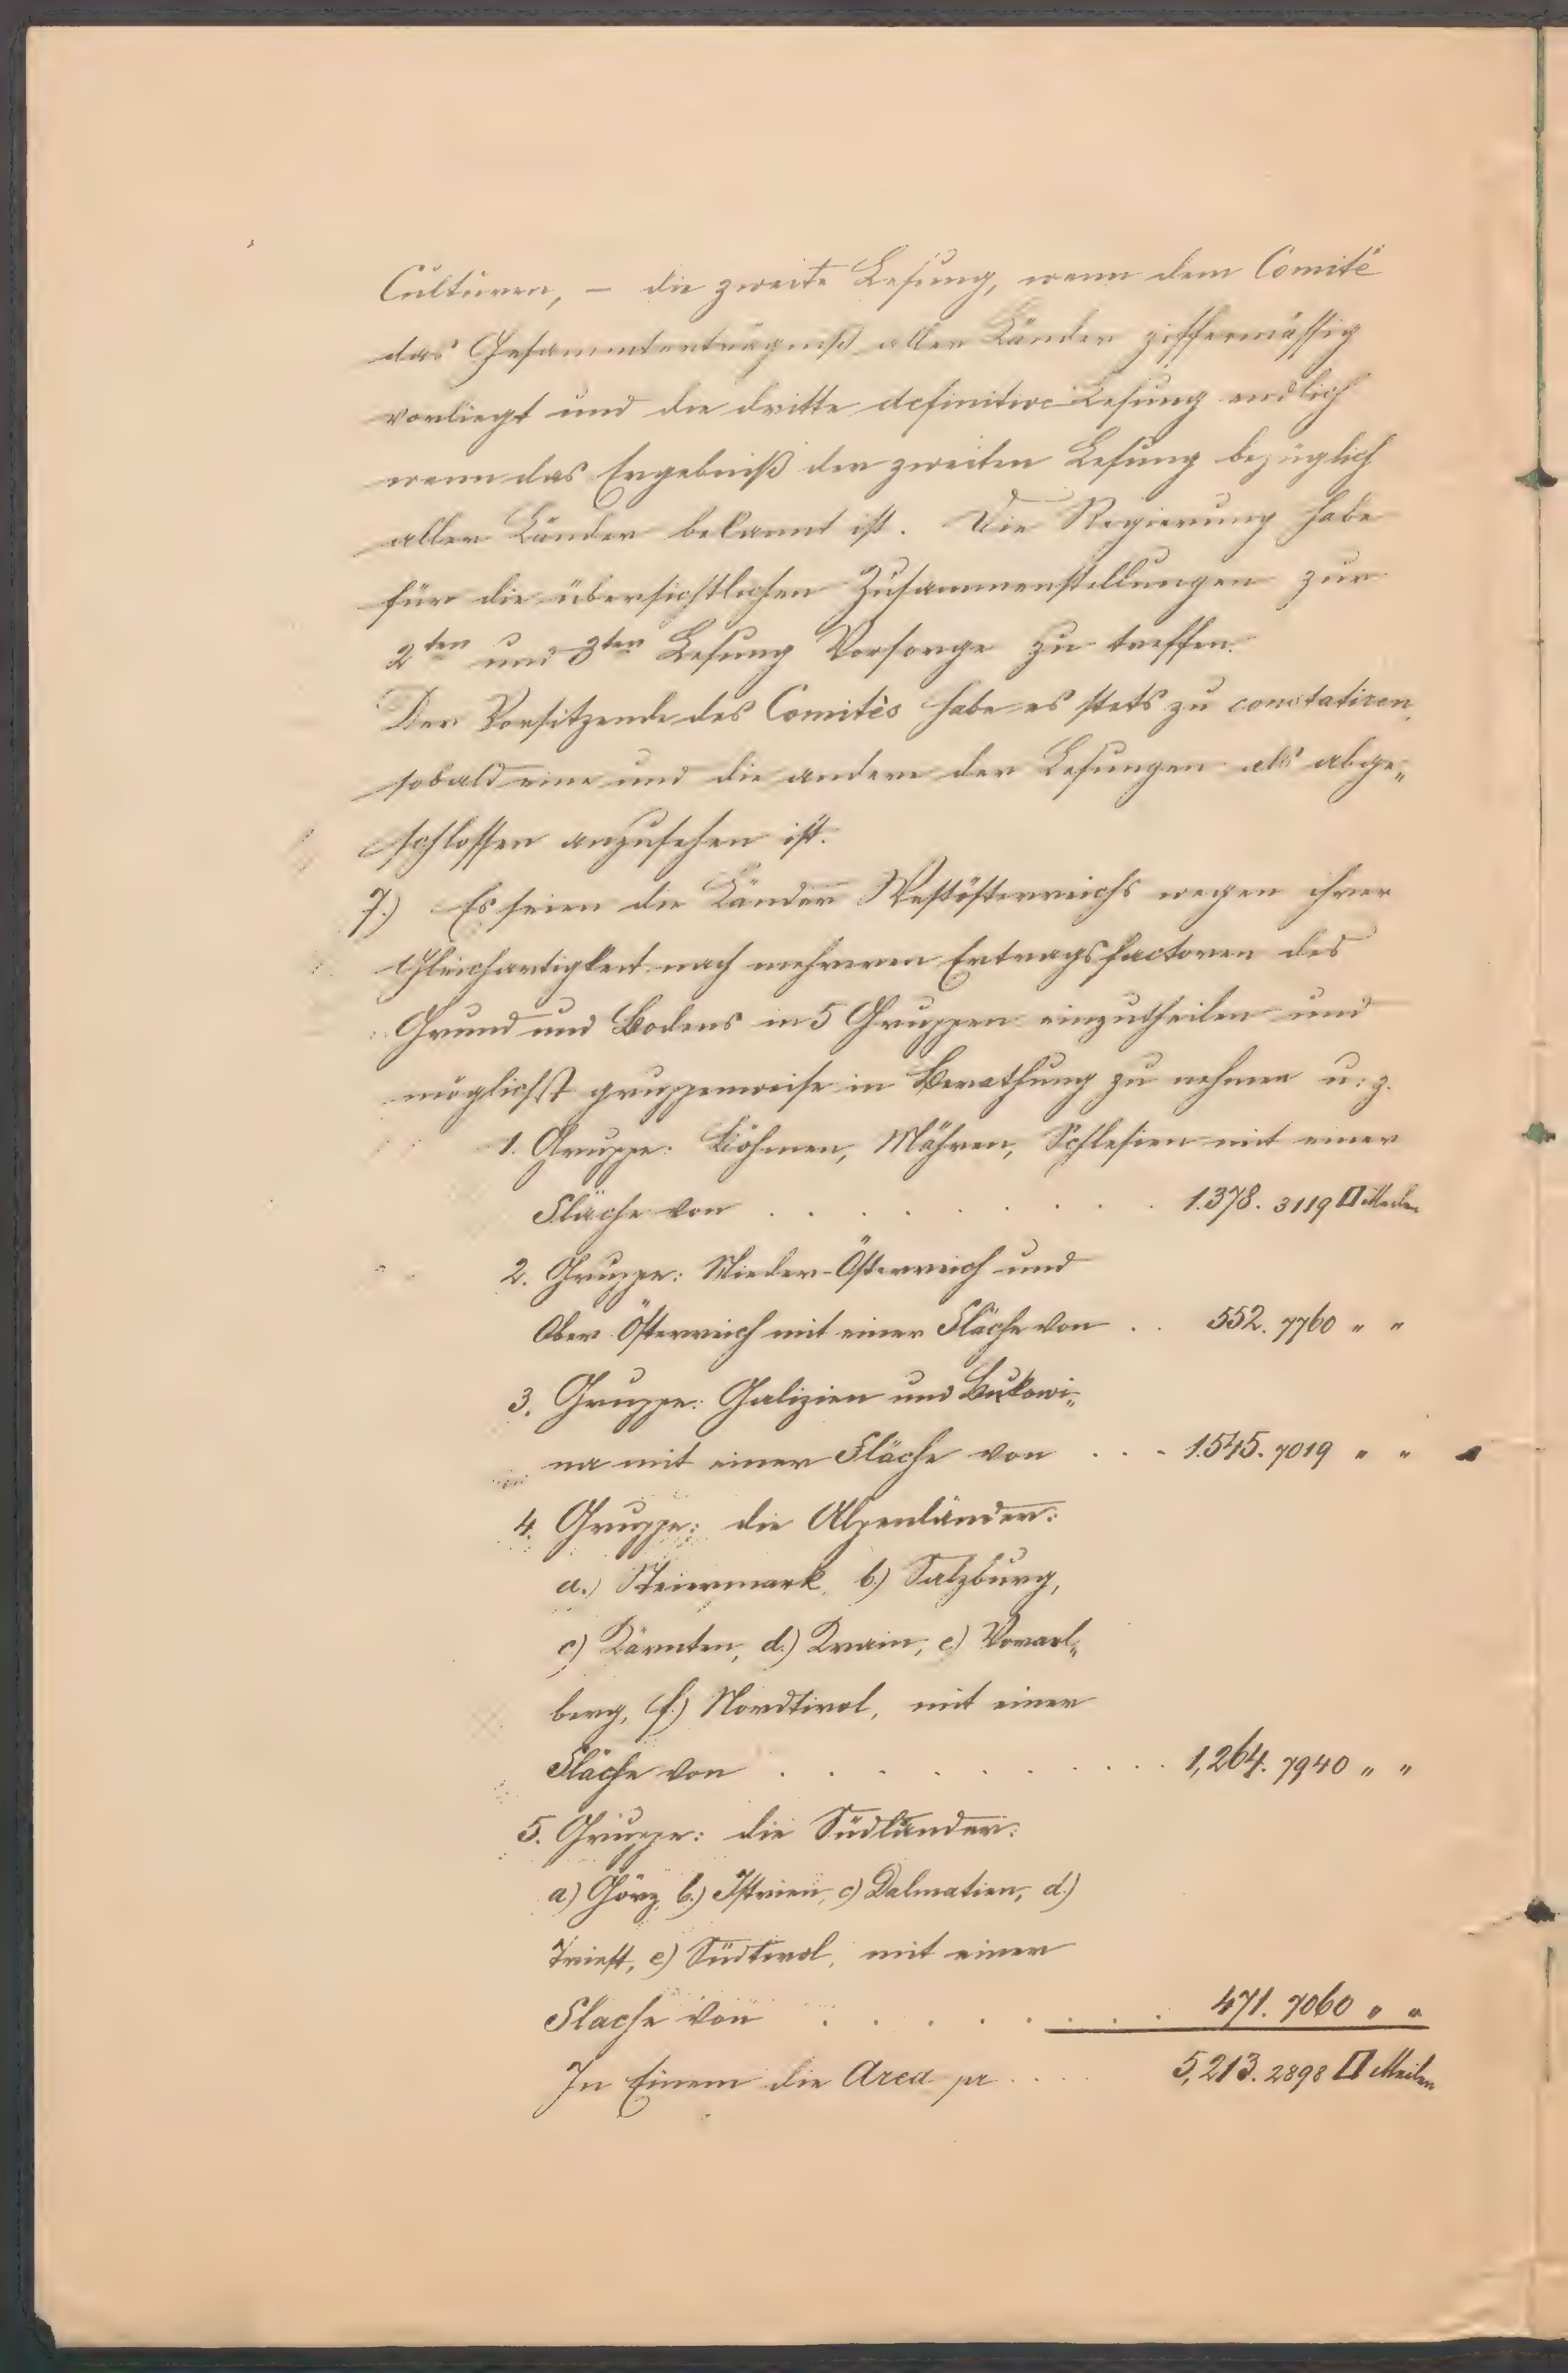 Culturen, – die zweite Lesung, wenn dem Comité
das Gesammterträgniß aller Länder ziffermässig
vorliegt und die dritte definitive Lesung endlich
wenn das Ergebniß der zweiten Lesung bezüglich
aller Länder bekannt ist. Die Regierung habe
für die übersichtlichen Zusammenstellungen zur
2ten und 3ten Lesung Vorsorge zu treffen.
Der Vorsitzende des Comités habe es stets zu constatiren,
sobald eine und die andere der Lesungen als abge„
schlossen anzusehen ist.
7.) Es seien die Länder Westösterreichs wegen ihrer
Gleichartigkeit nach mehreren Ertragsfactoren des
Grund und Bodens in 5 Gruppen einzutheilen und
möglichst gruppenweise in Berathung zu nehmen u. z.
1. Gruppe: Böhmen, Mähren, Schlesien mit einer
Fläche von . . . . . . . . . 1.378. 3119 □ Meilen
2. Gruppe: Nieder-Österreich und
Ober Österreich mit einer Fläche von . . 552. 7760 " "
3. Gruppe: Galizien und Bukowi„
na mit einer Fläche von . . . 1.545. 7019 " "
4. Gruppe: die Alpenländer:
a.) Steiermark, b.) Salzburg,
c) Kärnten, d.) Krain, e) Vorarl„
berg, f.) Nordtirol, mit einer
Fläche von . . . . . . . . . 1,264. 7940 " "
5. Gruppe: die Südländer:
a) Görz, b.) Istrien, c) Dalmatien, d.)
Triest, e) Südtirol, mit einer
Flache von . . . . . . . . 471. 7060 " "
In Einem die Area pr . . . . 5,213. 2898 □ Meilen